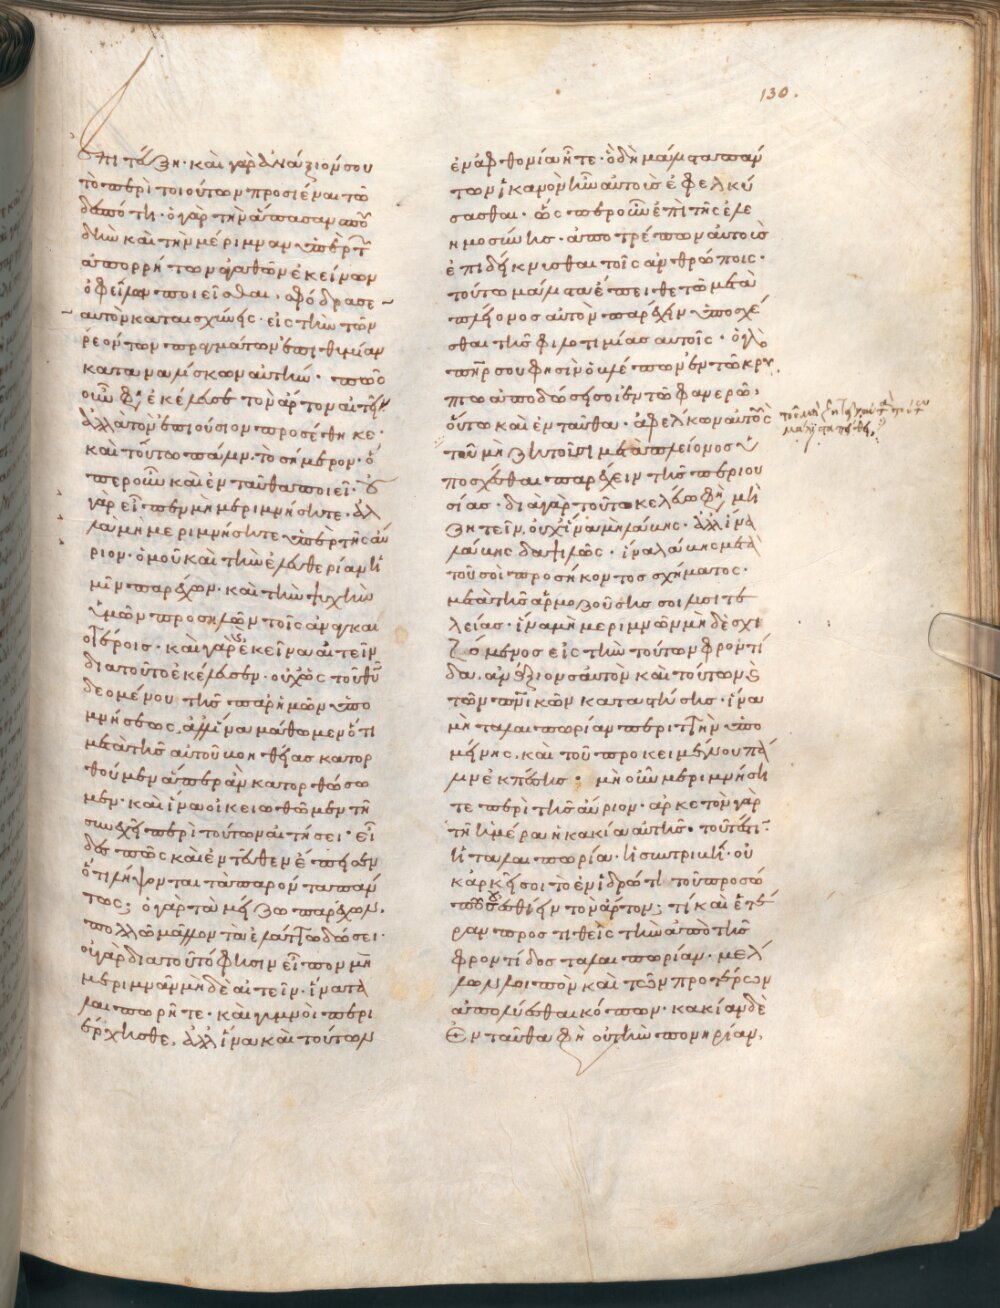 ἐπιτάζη· καὶ γὰρ ἀνάξιόν σου
τὸ περὶ τοιούτων προσιέναι τῶ
δεσπότη· ὁ γὰρ τὴν ἅπασαν σπου
δὴν καὶ τὴν μέριμναν ὑπὲρ τῶν
ἀπορρήτων ἀγαθῶν ἐκείνων
ὀφείλων ποιεῖσθαι, σφόδρα σε
αυτὸν καταισχύνεις· εἰς τὴν τῶν
ρεόντων πραγμάτων ἐπιθυμίαν
καταναλίσκων αὐτήν· πῶς
οὖν φησὶ ἐκέλευσε τὸν ἄρτον αἰτεῖν
ἀλλὰ τὸν ἐπιούσιον προσέθηκε·
καὶ τούτω πάλιν τὸ σήμερον· ὅ
περ οὖν καὶ ἐνταῦθα ποιεῖ· οὐ
γὰρ εἶπεν μὴ μεριμνήσητε· ἀλ
λὰ μὴ μεριμνήσητε ὑπὲρ τῆς αὔ
ριον· ὁμοῦ καὶ τὴν ἐλευθερίαν ἡ
μῖν παρέχων· καὶ τὴν ψυχὴν
ἡμῶν προσηλῶν τοῖς ἀναγκαι
οτέροις· καὶ γὰρ ἐκεῖνα αἰτεῖν
διατοῦτο ἐκέλευσεν· οὐχ ὡς τοῦ θῦ
δεομένου τῆς παρημῶν ὑπο
μνήσεως, ἀλλ' ἵνα μάθωμεν ὅτι
μετὰ τῆς αὐτοῦ βοηθείας κατορ
θοῦμεν ἅπερ ἂν κατορθώσω
μεν· καὶ ἵνα οἰκειωθῶμεν τῆ
συνεχῆ περὶ τούτων αἰτήσει· εἶ
δες πῶς καὶ ἐντεῦθεν ἔπεισεν
ὅτι λήψονται τὰ παρόντα πάν
τως; ὁ γὰρ τὰ μείζω παρέχων,
πολλῶ μᾶλλον τὰ ἐλάττω δώσει·
οὐ γὰρ διατοῦτό φησιν εἶπον μὴ
μεριμνᾶν μηδὲ αἰτεῖν· ἵνα τα
λαιπωρῆτε· καὶ γυμνοὶ περι
έρχησθε, ἀλλ' ἵνα καὶ τούτων
130.
ἐν ἀφθονία ἦτε· ὁ δὴ μάλιστα πάν
των ἱκανὸν ἦν αὐτοὺς ἐφελκύ
σασθαι· ὥσπερ οὖν ἐπὶ τῆς ἐλε
ημοσύνης· ἀποτρέπων αὐτοὺς
ἐπιδείκνυσθαι τοῖς ἀνθρώποις·
τούτω μάλιστα ἔπειθε τῶ μετὰ
πλείονος αὐτὸν παρέξειν ὑποσχέ
σθαι τῆς φιλοτιμίας αὐτοῖς· ὁ γὰρ
πηρ σου φησὶν ὁ βλέπων ἐν τῶ κρυ
πτῶ ἀποδώσει σοι ἐν τῶ φανερῶ,
οὕτω καὶ ἐνταῦθα· ἀφελκων αὐτοὺς
τοῦ μὴ ζητεῖν μετὰ πλείονος ὑ
ποσχέσθαι παρέχειν τῆς περιου
σίας· διὰ γὰρ τοῦτο κελεύω φησὶ μὴ
ζητεῖν, οὐχ ἵνα μὴ λάβης· ἀλλ' ἵνα
λάβης δαψιλῶς· ἵνα λάβης μετὰ
τοῦ σοὶ προσήκοντος σχήματος·
μετὰ τῆς ἁρμοζούσης σοι
λείας· ἵνα μὴ μεριμνῶν μηδὲ σχι
ζόμενος εἰς τὴν τούτων φροντί
δα, ἀνάξιον σαυτὸν καὶ τούτων
τῶν πνικῶν καταστήσης· ἵνα
μὴ ταλαιπωρίαν περιττὴν ὑπο
μείνης, καὶ τοῦ προκειμένου πά
λιν ἐκπέσης· μὴ οὖν μεριμνήση
τε περὶ τῆς αὔριον· ἀρκετὸν γὰρ
τῆ ἡμέρα ἡ κακία αὐτῆς· τουτέστιν
ἡ ταλαιπωρία· ἡ συντριβή· οὐ
κ ἀρκεῖ σοι τὸ ἐν ἱδρῶτι τοῦ προσώ
που σου ἐσθίειν τὸν ἄρτον; τί καὶ ἑτέ
ραν προστιθεῖς τὴν ἀπὸ τῆς
φροντίδος ταλαιπωρίαν· μέλ
λων λοιπὸν καὶ τῶν προτέρων
ἀπολύεσθαι κόπων· κακίαν δὲ
ἐνταῦθα φησὶ οὐ τὴν πονηρίαν,